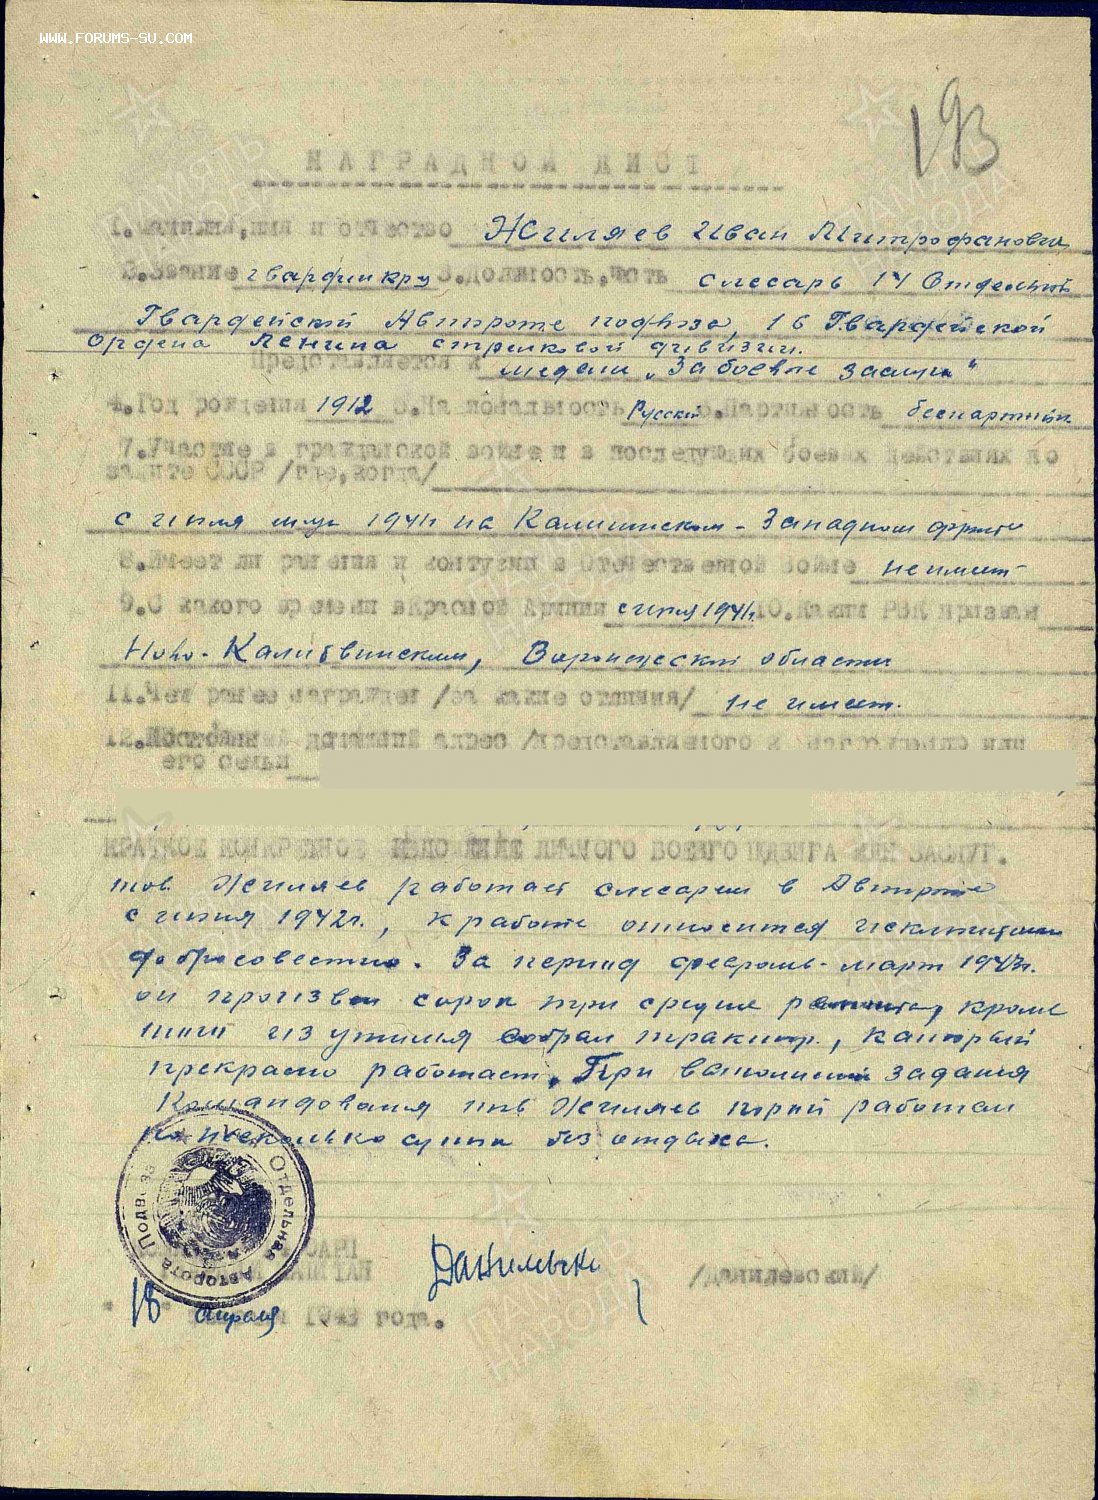 WWW.FORUMS-SU.COM
193
НАГРАДНОЙ ЛИСТ
1.Фамилия,имя и отчество Жиляев Иван Митрофанович
2.Звание гвард 3.Должность,часть слесарь 14 Отдельной
Гвардейской Автороте подвоза, 16 Гвардейской
Ордена Ленина стрелковой дивизии.
Представляется к медали „За боевые заслуги"
4.Год рождения 1912 5.Национальность Русский 6.Партийность беспартийный
7.Участие в гражданской войне и в последующих боевых действиях по
защите СССР /где,когда/
с июля 1941г на Калининском - Западном фронте
8.Имеет ли ранения и контузии в Отечественной Войне не имеет
9.С какого времени в Красной Армии с июля 1941г. 10.Каким РВК призван
Ново-Калитвинским, Воронежской области
11.Чем ранее награжден /за какие отличия/ не имеет.
12.Постоянный домашний адрес /представляемого к награждению или
его семьи
КРАТКОЕ КОНКРЕТНОЕ ИЗЛОЖЕНИЕ ЛИЧНОГО БОЕВОГО ПОДВИГА ИЛИ ЗАСЛУГ.
тов Жиляев работает слесарем в Автороте
с июня 1942г., к работе относится исключительно
добросовестно. За период февраль-март 1943г.
он произвел сорок три средних ремонта, кроме
того из утиля собрал трактор, который
прекрасно работает. При выполнении задания
Командования тов Жиляев порой работал
по несколько суток без отдыха.
Отдельная Авторота Подвоза
КАПИТАН Данилевский /ДАНИЛЕВСКИЙ/
"18" апреля 1943 года.
ПАМЯТЬ НАРОДА